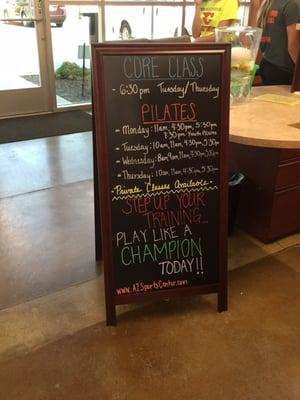 CORE CLASS
- 6:30 pm Tuesday/Thursday
PILATES
- Monday: 11am, 4:30pm, 5:30pm
7:30pm Youth Pilates
- Tuesday: 10am, 11am, 4:30pm, 5:30pm
- Wednesday: 8am, 9am, 11am, 4:30pm, 5:30
- Thursday: 10am, 11am, 4:30pm, 5:30
Private Classes Available
STEP UP YOUR
TRAINING
PLAY LIKE A
CHAMPION
TODAY!!
www.A2SportsCenter.com